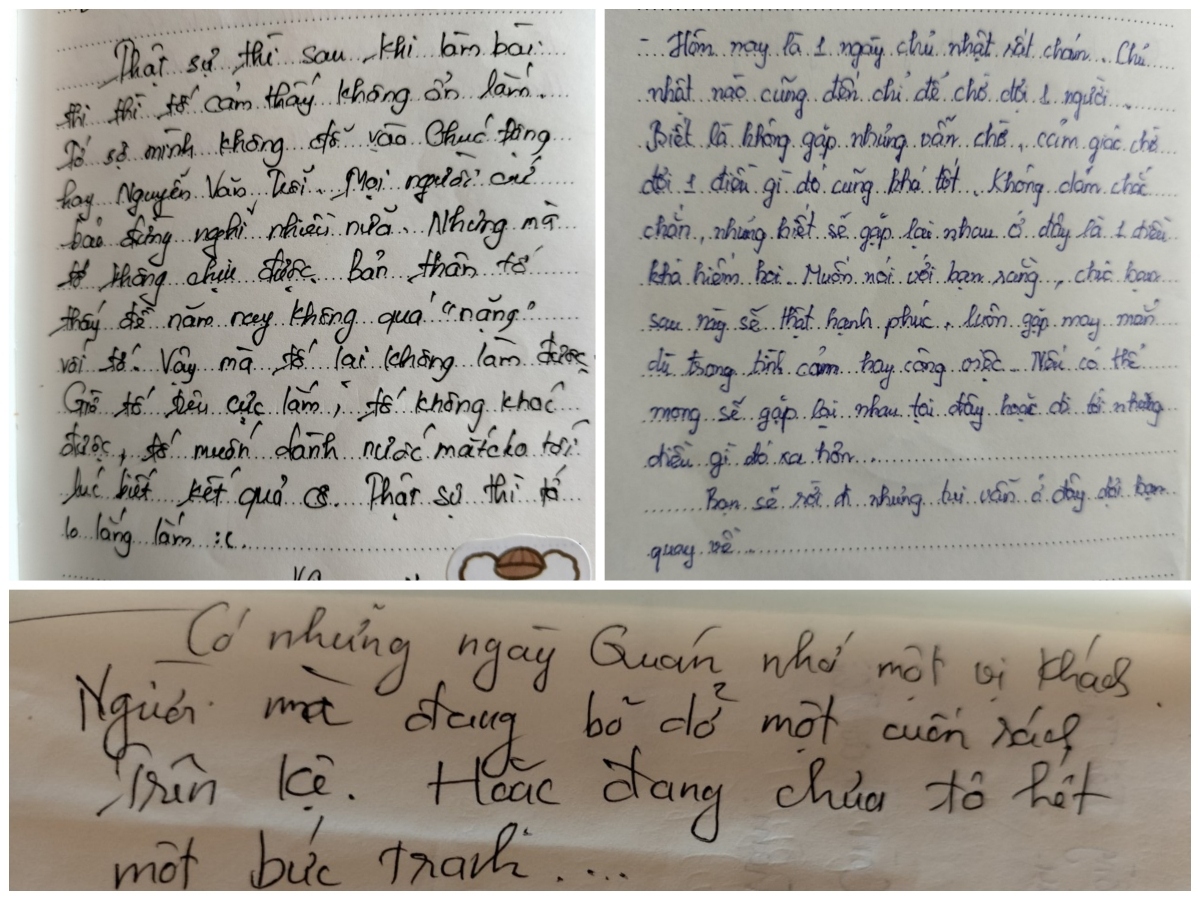 Thật sự thì sau khi làm bài
thi thì tớ cảm thấy không ổn lắm.
Tớ sợ mình không đỗ vào Chúc Động
hay Nguyễn Văn Trỗi. Mọi người cứ
bảo đừng nghĩ nhiều nữa. Nhưng mà
tớ không chịu được. Bản thân tớ
thấy đề năm nay không quá "nặng"
với tớ. Vậy mà tớ lại không làm được
Giờ tớ tiêu cực lắm, tớ không khóc
được, tớ muốn dành nước mắt cho tới
lúc biết kết quả cơ. Thật sự thì tớ
lo lắng lắm :c.
- Hôm nay là 1 ngày chủ nhật rất chán. Chủ
nhật nào cũng đến chỉ để chờ đợi 1 người.
Biết là không gặp nhưng vẫn chờ, cảm giác chờ
đợi 1 điều gì đó cũng khá tốt. Không dám chắc
chắn, nhưng biết sẽ gặp lại nhau ở đây là 1 điều
khá hiếm hoi. Muốn nói với bạn rằng, chúc bạn
sau này sẽ thật hạnh phúc, luôn gặp may mắn
dù trong tình cảm hay công việc. Nếu có thể
mong sẽ gặp lại nhau tại đây hoặc đi tới những
điều gì đó xa hơn...
Bạn sẽ rời đi nhưng tui vẫn ở đây đợi bạn
quay về...
Có những ngày Quán nhớ một vị khách.
Người mà đang bỏ dở một cuốn sách
Trên kệ. Hoặc đang chưa tô hết
một bức tranh....